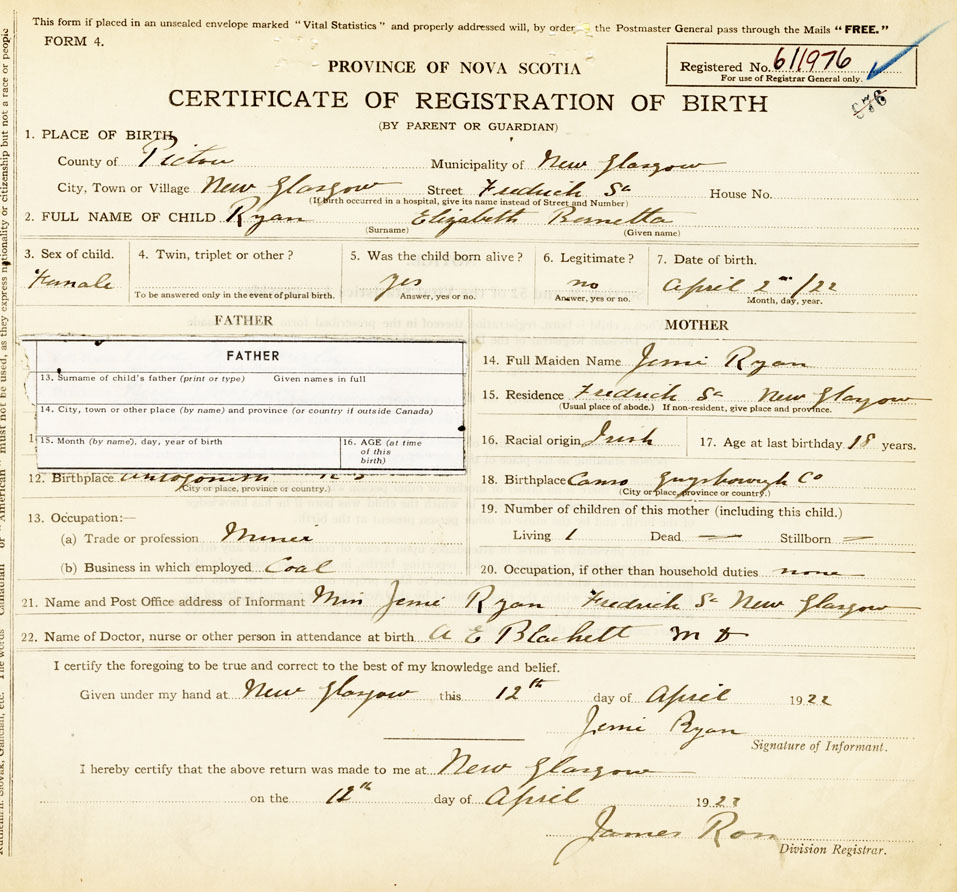 This form if placed in an unsealed envelope marked "Vital Statistics" and properly addressed will, by order, the Postmaster General pass through the Mails "FREE."
FORM 4.
Registered No. 611976
For use of Registrar General only.
876
PROVINCE OF NOVA SCOTIA
CERTIFICATE OF REGISTRATION OF BIRTH
(BY PARENT OR GUARDIAN)
1. PLACE OF BIRTH
County of Pictou Municipality of New Glasgow
City, Town or Village New Glasgow Street Fredrick St House No.
(If birth occurred in a hospital, give its name instead of Street and Number)
2. FULL NAME OF CHILD Ryan Elizabeth Bernetta
(Surname) (Given name)
3. Sex of child. 4. Twin, triplet or other? 5. Was the child born alive? 6. Legitimate? 7. Date of birth.
Female yes no April 2nd/22
To be answered only in the event of plural birth. Answer, yes or no. Answer, yes or no. Month, day, year.
FATHER
FATHER
13. Surname of child's father (print or type) Given names in full
14. City, town or other place (by name) and province (or country if outside Canada)
15. Month (by name), day, year of birth 16. AGE (at time of this birth)
12. Birthplace Antogonish N S
(City or place, province or country.)
13. Occupation:—
(a) Trade or profession Miner
(b) Business in which employed Coal
MOTHER
14. Full Maiden Name Jemi Ryan
15. Residence Fredrick St New Glasgow
(Usual place of abode.) If non-resident, give place and province.
16. Racial origin Irish 17. Age at last birthday 18 years.
18. Birthplace Canso Guysborough Co
(City or place, province or country.)
19. Number of children of this mother (including this child.)
Living 1 Dead — Stillborn —
20. Occupation, if other than household duties none
21. Name and Post Office address of Informant Miss Jemi Ryan Fredrick St New Glasgow
22. Name of Doctor, nurse or other person in attendance at birth A E Blackett M D
I certify the foregoing to be true and correct to the best of my knowledge and belief.
Given under my hand at New Glasgow this 12th day of April 1922
Jemi Ryan
Signature of Informant.
I hereby certify that the above return was made to me at New Glasgow
on the 12th day of April 1922
James Ron
Division Registrar.